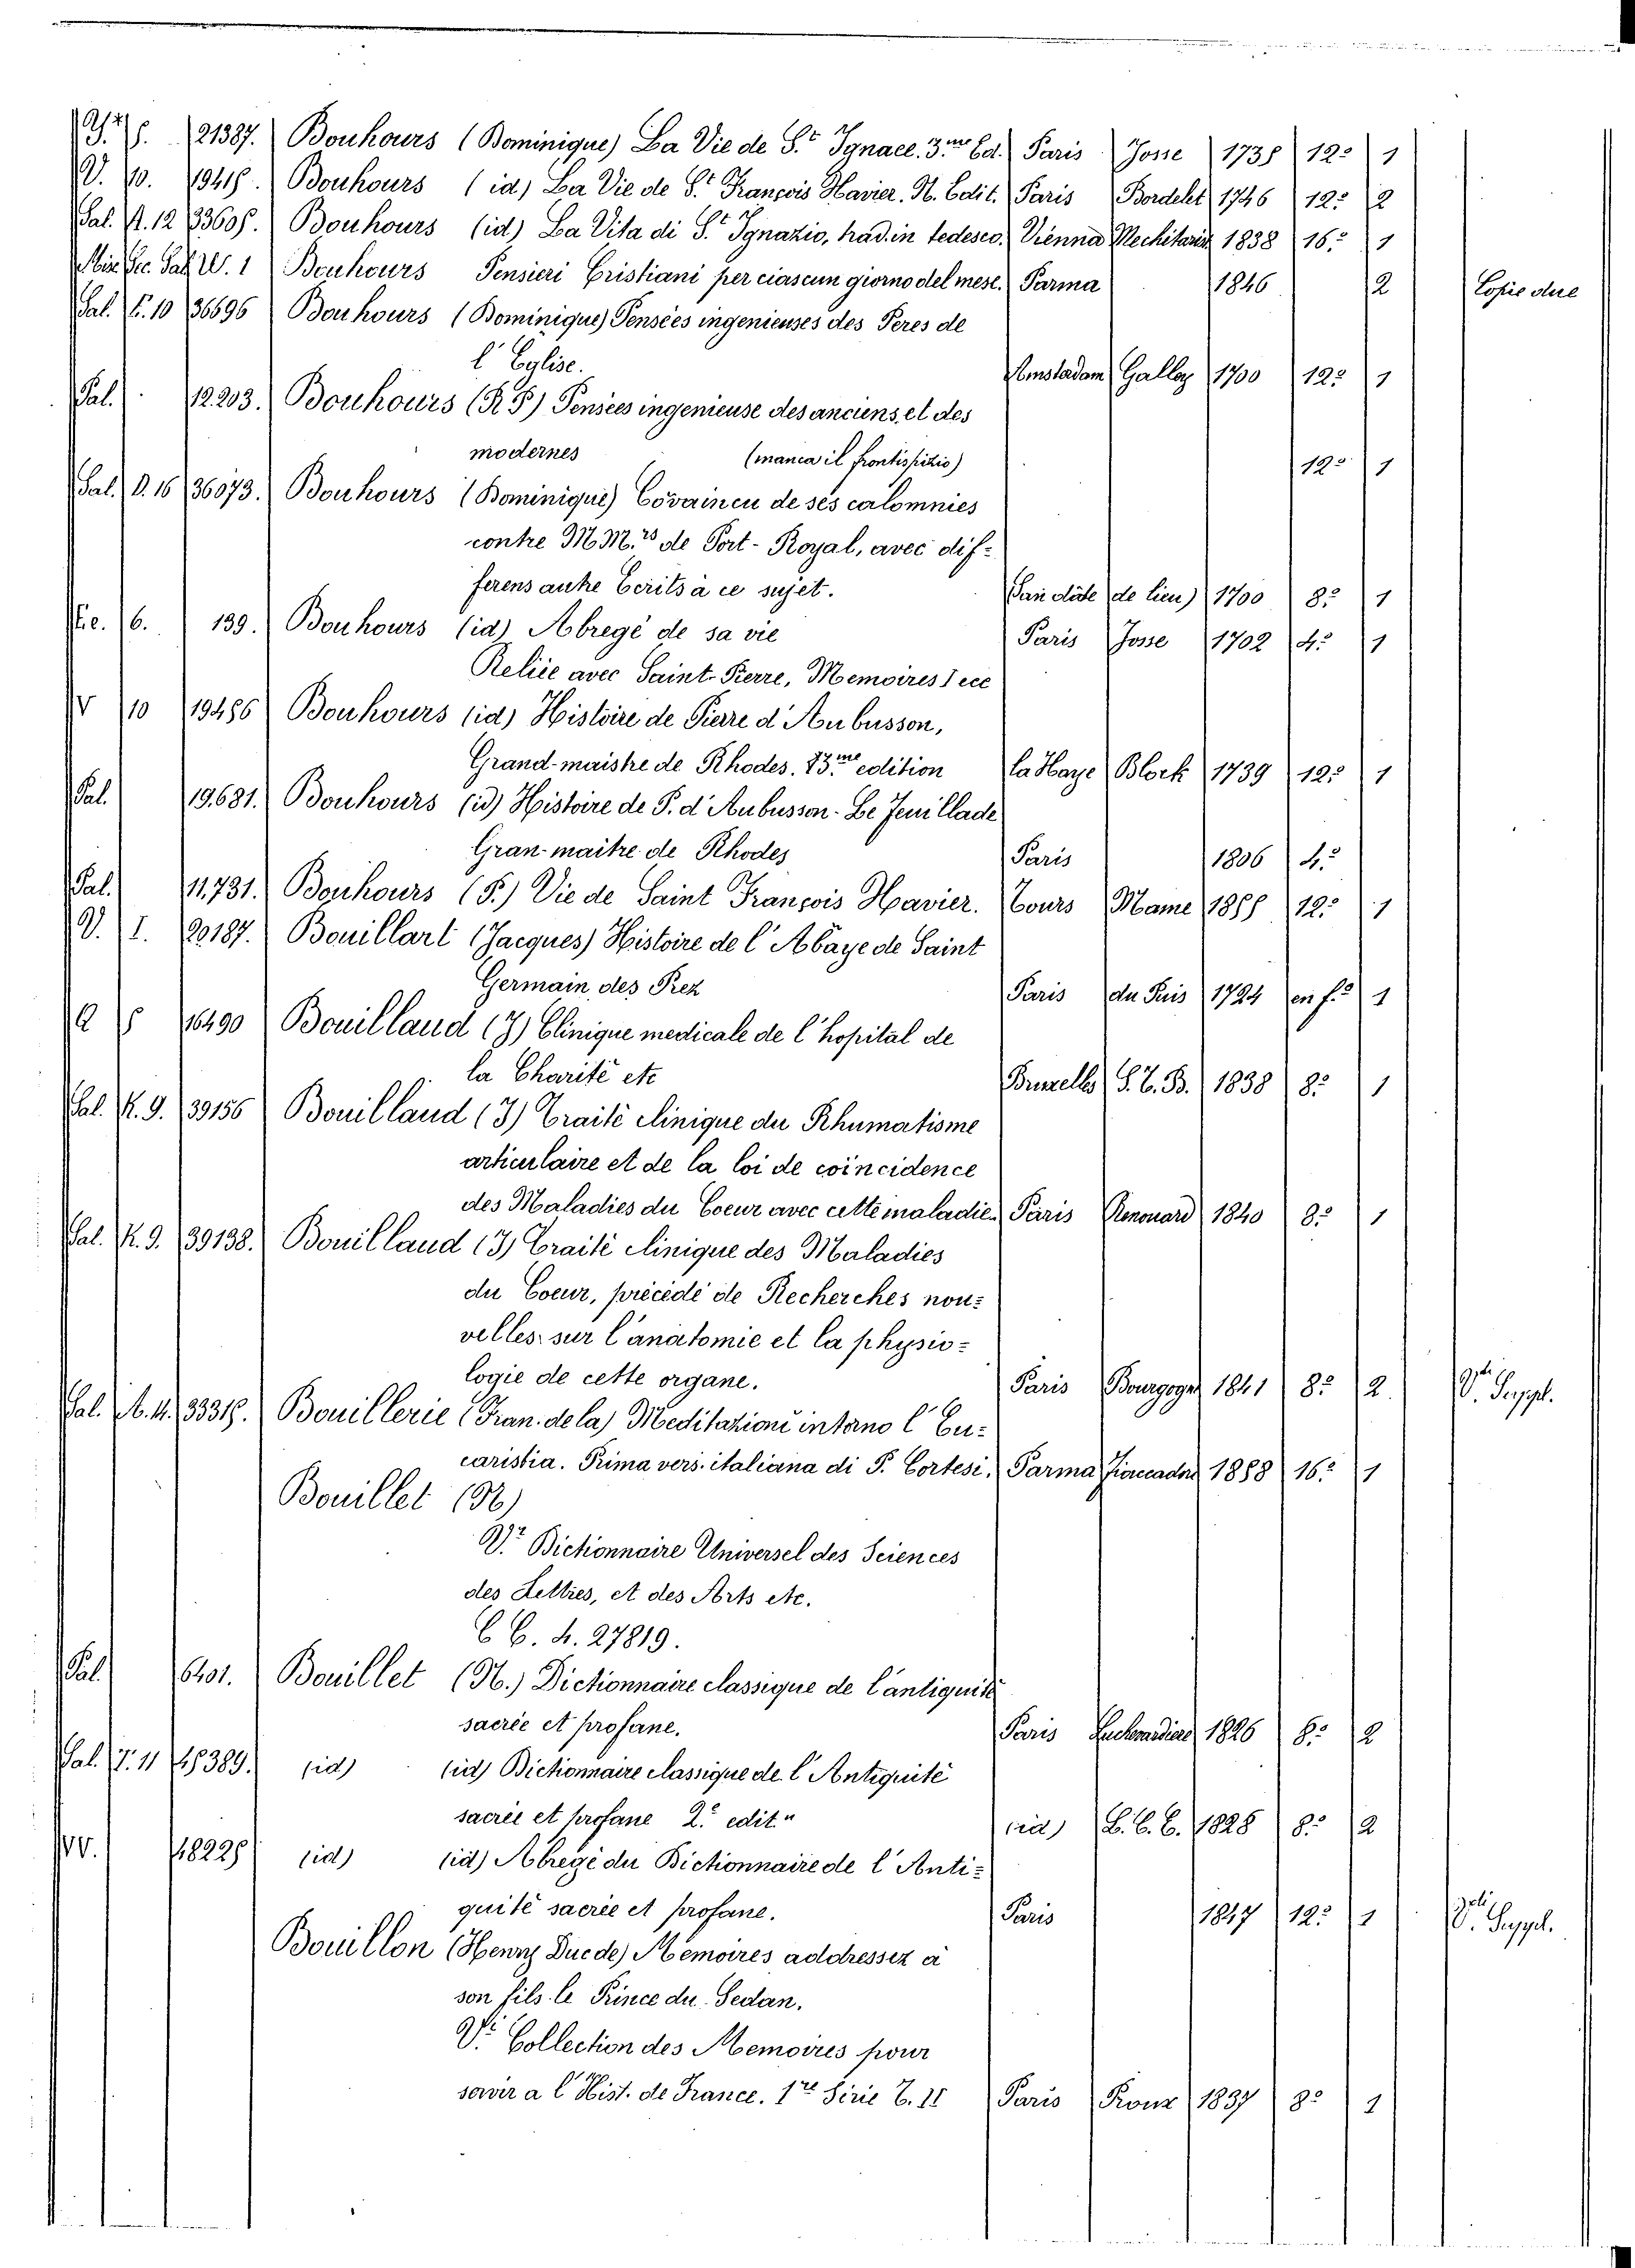 21387. Bouhours (Dominique) La Vie de S.t Ignace. 3.me Ed. Paris Josse 12.o 1
V. 10. Bouhours (id) La Vie de S.t François Xavier. N. Edit. Paris 1746 12.o 2
Sal. A. 12 Bouhours (id) La Vita di S.t Ignazio, trad. in tedesco. Vienna Mechitarist 1838 16.o 1
Bouhours Pensieri Cristiani per ciascun giorno del mese. Parma 1846 2 Copie due
Sal. F. 10 36696 Bouhours (Dominique) Pensées ingenieuses des Peres de
l'Eglise. Amsterdam 1700 12.o 1
Sal. 12.203. Bouhours (R P) Pensées ingenieuse des anciens, et des
modernes (manca il frontispizio) 12.o 1
Sal. D. 16 36073. Bouhours (Dominique) Covaincu de ses calomnies
contre M M.rs de Port-Royal, avec dif=
ferens autre Ecrits à ce sujet. de lieu) 1700 8.o 1
6. 139. Bouhours (id) Abregé de sa vie Paris Josse 1702 4.o 1
Reliée avec Saint-Pierre, Memoires
V 10 19486 Bouhours (id) Histoire de Pierre d'Aubusson,
Grand-maistre de Rhodes. edition la Haye Block 1739 12.o 1
Sal. 19.681. Bouhours (id) Histoire de P. d'Aubusson-
Gran-maitre de Rhodes Paris 1806 4.o
Sal. 11.731. Bouhours (P.) Vie de Saint François Xavier. Tours Mame 12.o 1
V. I. 20187. Bouillart (Jacques) Histoire de l'Abaye de Saint
Germain des Prez Paris du Puis 1724 en f.o 1
16490 Bouilland (J) Clinique medicale de l'hopital de
la Charité etc Bruxelles 1838 8.o 1
Sal. K. 9. 39156 Bouilland (J) Traité clinique du Rhumatisme
articulaire et de la loi de coincidence
des Maladies du Coeur avec cette maladie. Paris Renouard 1840 8.o 1
Sal. K. 9. 39138. Bouilland (J) Traité clinique des Maladies
du Coeur, précédé de Recherches nou=
velles sur l'anatomie et la physio=
logie de cette organe. Paris Bourgogne 1841 8.o 2 Suppl.
Bouillerie (Fran. de la) Meditazioni intorno l'Eu=
caristia. Prima vers. italiana di P. Cortesi. Parma Fiaccadori 16.o 1
Bouillet (N)
V. Dictionnaire Universel des Sciences
des Lettres, et des Arts etc.
C C. 4. 27819.
Sal. 6401. Bouillet (N.) Dictionnaire classique de l'antiquité
sacrée et profane. Paris 1826 8.o 2
(id) (id) Dictionnaire classique de l'Antiquité
sacrée et profane 2.e edit.n (id) 1828 8.o 2
(id) (id) Abregé du Dictionnaire de l'Anti=
quité sacrée et profane. Paris 1847 12.o 1 Suppl.
Bouillon (Henry Duc de) Memoires addressez à
son fils le Prince du Sedan.
V. Collection des Memoires pour
servir a l'Hist. de France. 1re Série T. 11 Paris 1837 8.o 1